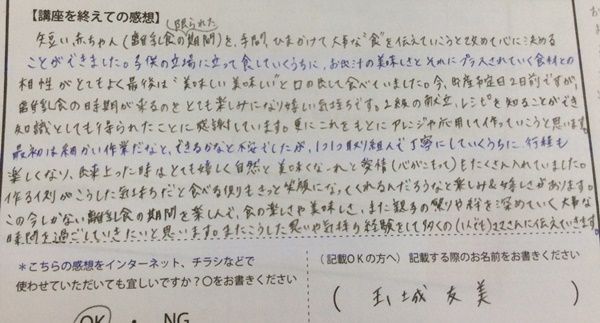 【講座を終えての感想】
限られた
短い、赤ちゃん(離乳食の期間)を、手間、ひまかけて大事な"食"を伝えていこうと改めて心に決める
ことができました。子供の立場に立って食していくうちに、お出汁の美味しさとそれにプラスされていく食材との
相性がとてもよく最後は"美味しい美味しい"と口に出して食べていました。今、出産予定日2日前ですが、
離乳食の時期が来るのをとても楽しみになり嬉しい気持ちです。2級の献立、レシピを知ることができ
知識としても得られたことに感謝しています。更にこれをもとにアレンジや応用して作っていこうと思います。
最初は細かい作業だなと、できるかなと不安でしたが、1つ1つ取り組んで丁寧にしていくうちに、行程も
楽しくなり、出来上った時はとても嬉しく自然と美味くなーれと愛情(心がこもって)もたくさん入れていました。
作る側がこうした気持ちだと食べる側もきっと笑顔になってくれるんだろうなと楽しみ&嬉しさがあります。
この今しかない離乳食の期間を楽しんで、食の楽しさや美味しさ、また親子の関りや絆を深めていく大事な
時間を過ごしていきたいと思います。またこうした思いや気持ち経験をして多くの(1人でも)ママさんに伝えていきます。
*こちらの感想をインターネット、チラシなどで
使わせていただいても宜しいですか?○をお書きください
OK ・ NG
(記載OKの方へ)記載する際のお名前をお書きください
( 玉城 友美